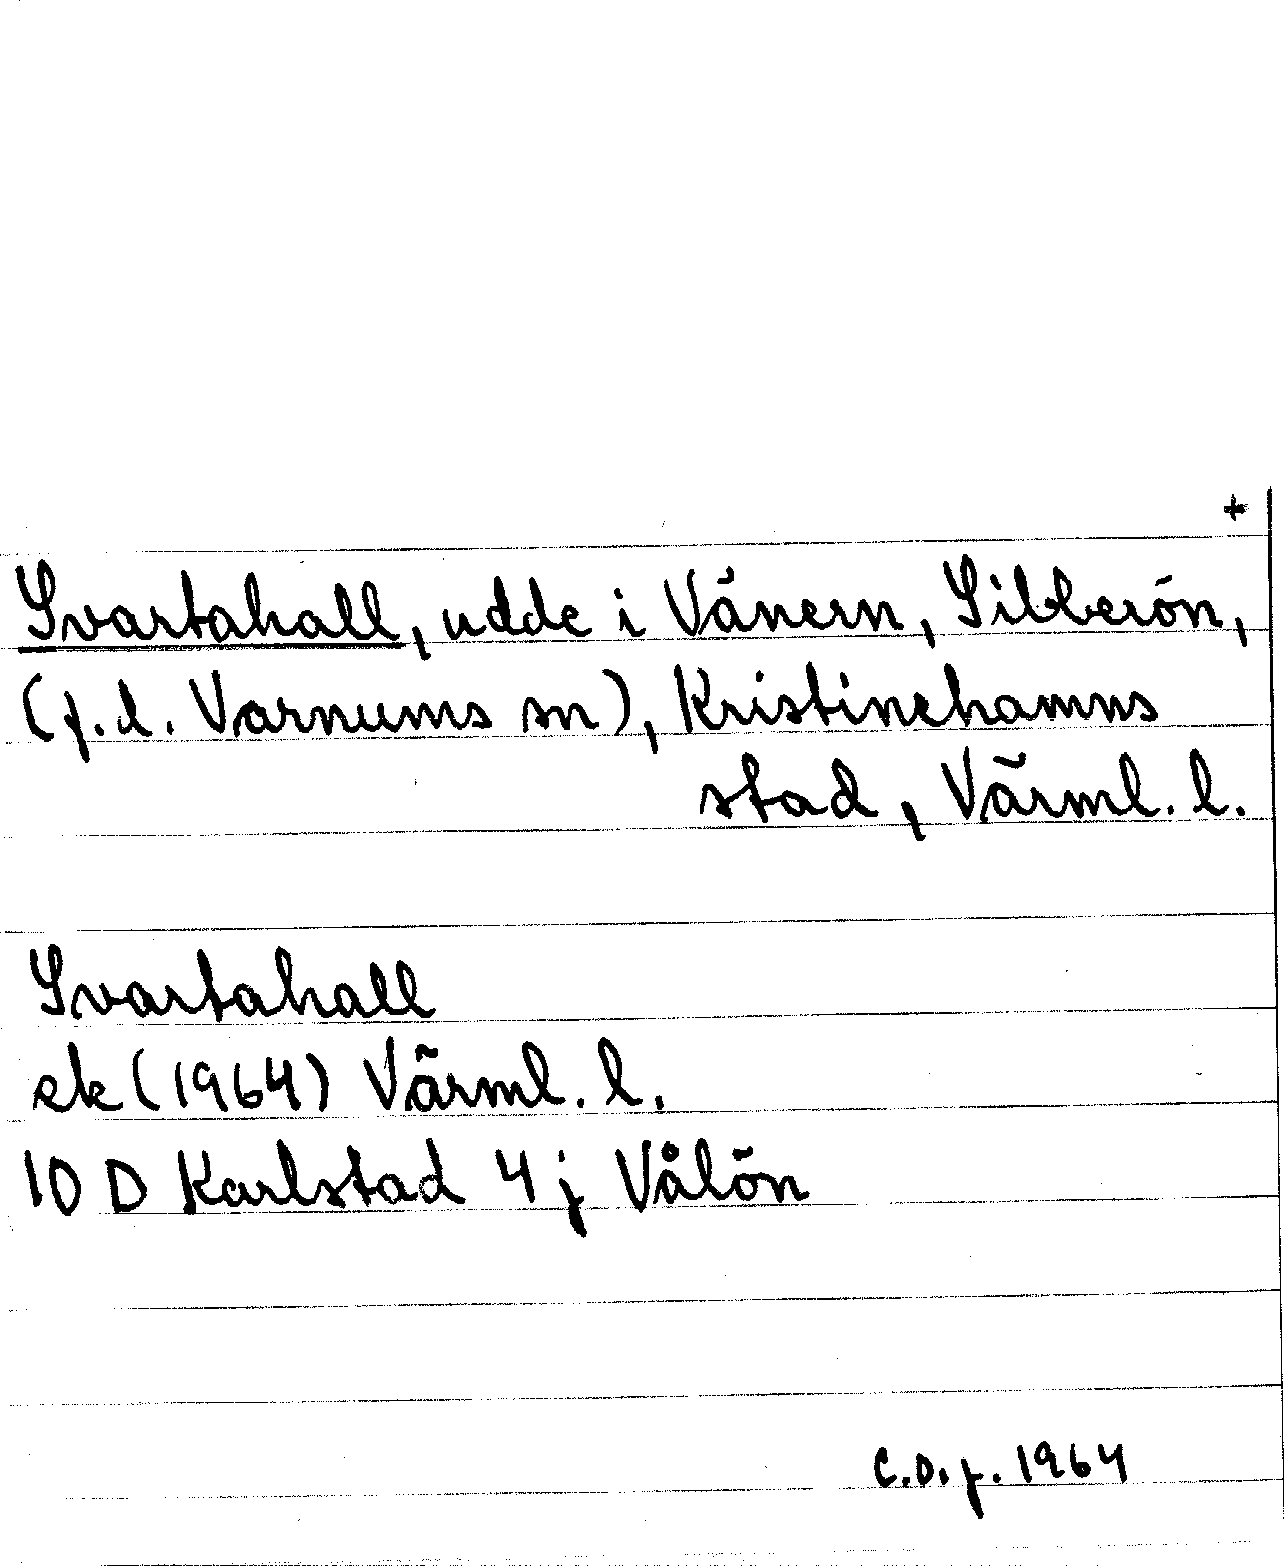 +
Svartahall, udde i Vänern, Sibberön,
(f.d. Varnums sn), Kristinehamns
stad, Värml. l.
Svartahall
ek (1964) Värml. l.
10 D Karlstad 4 j Vålön
C.D.f. 1964